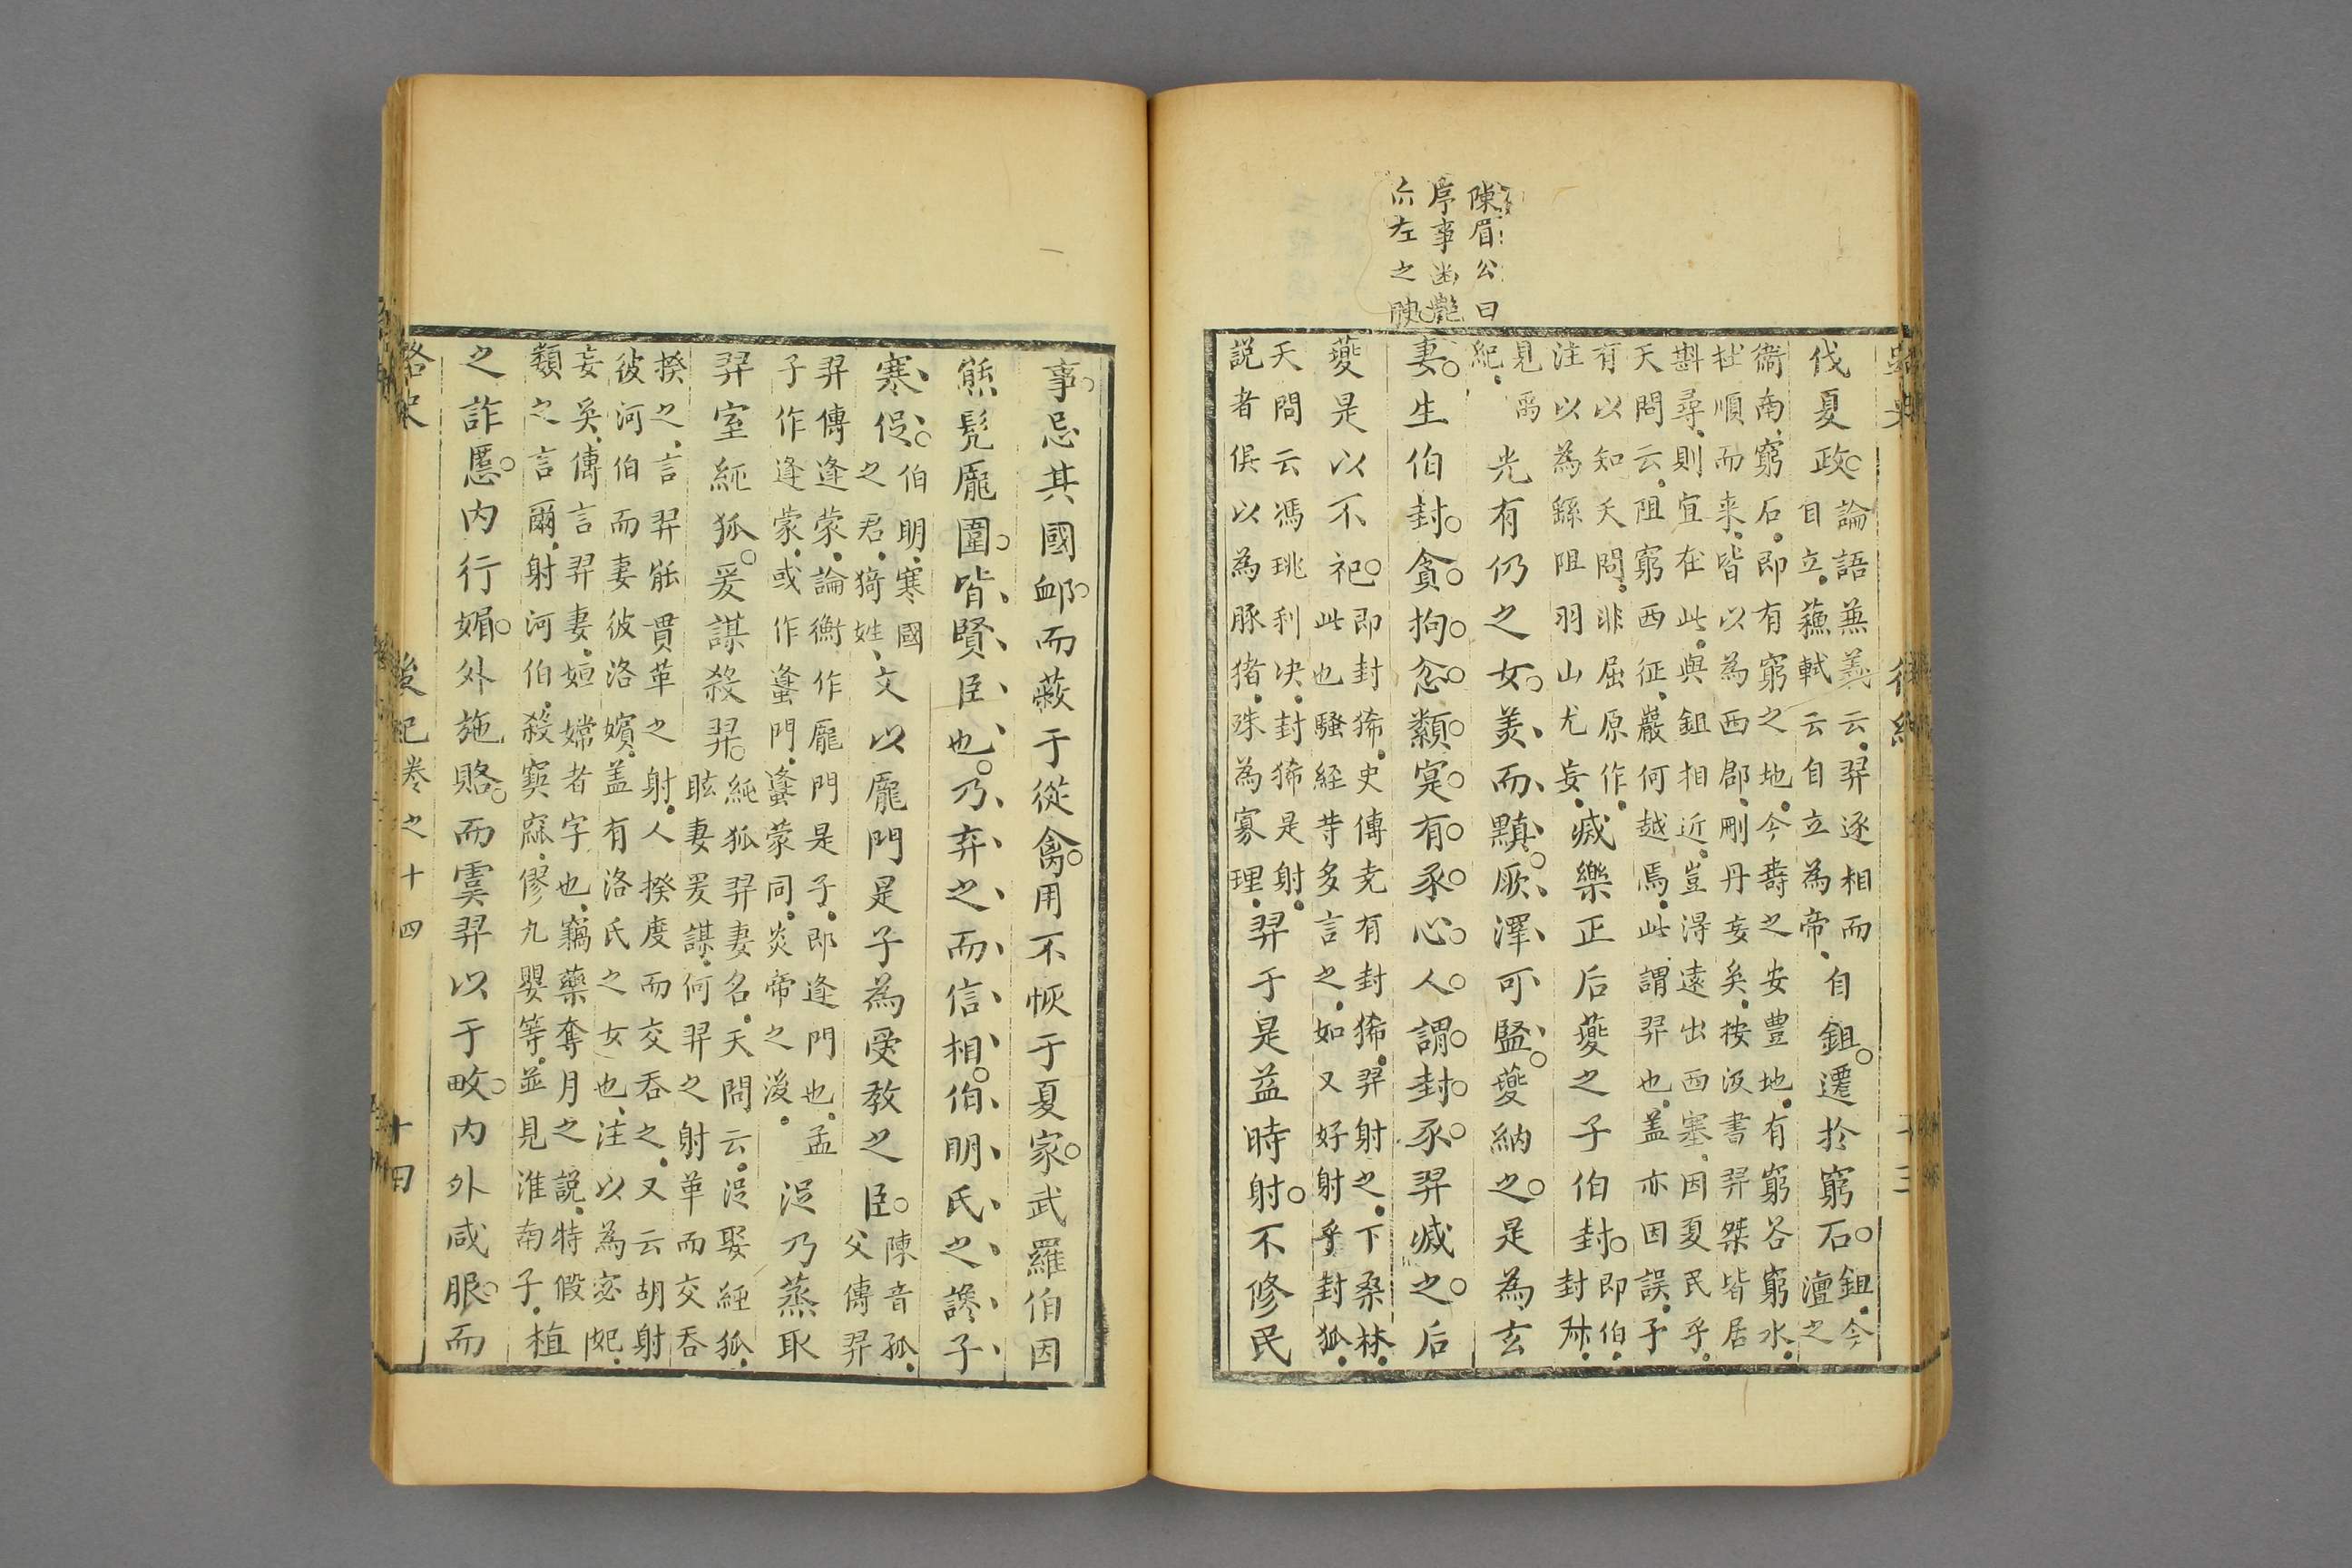 陳眉公曰
序事幽艷
亦左之腴
伐夏政
論語兼義云羿逐相而
自立蘇軾云自立為帝
自鉏遷於窮石
鉏今
澶之
衛南窮石即有窮之地今壽之安豐地有窮谷窮水
杜順而来皆以為西郡刪丹妄矣按汲書羿桀皆居
斟尋則宜在此與鉏相近豈得遠出西塞因夏民乎
天問云阻窮西征巖何越焉此謂羿也盖亦因誤予
有以知天問非屈原作
注以為鯀阻羽山尤妄
滅樂正后夔之子伯封
即伯
封
見禹
紀
光有仍之女美而黰厥澤可鑒夔納之是為玄
妻生伯封貪拘忿纇寔有豕心人謂封豕羿滅之后
夔是以不祀
即封狶史傳尭有封狶羿射之下桑林
此也騷經苦多言之如又好射乎封狐
天問云馮珧利决封狶是射
説者俱以為豚猪殊為寡理
羿于是益時射不修民
事忌其國卹而蔽于從禽用不恢于夏家武羅伯因
熊髡龎圉皆賢臣也乃弃之而信相伯明氏之讒子
寒浞
伯明寒國
之君猗姓
文以龎門是子為受教之臣
陳音孤
父傳羿
羿傳逢蒙論衡作龎門是子即逢門也孟
子作逢蒙或作蠭門蠭蒙同炎帝之後
浞乃蒸取
羿室純狐爰謀殺羿
純狐羿妻名天問云浞娶純狐
眩妻爰謀何羿之射革而交吞
揆之言羿能貫革之射人揆度而交吞之又云胡射
彼河伯而妻彼洛嬪盖有洛氏之女也注以為宓妃
妄矣傳言羿妻姮嫦者字也竊藥奪月之説特假
類之言爾射河伯殺窫窳僇九嬰等並見淮南子
植
之詐慝内行媚外施賂而虞羿以于畋内外咸服而
路史
後紀卷之十四
十四